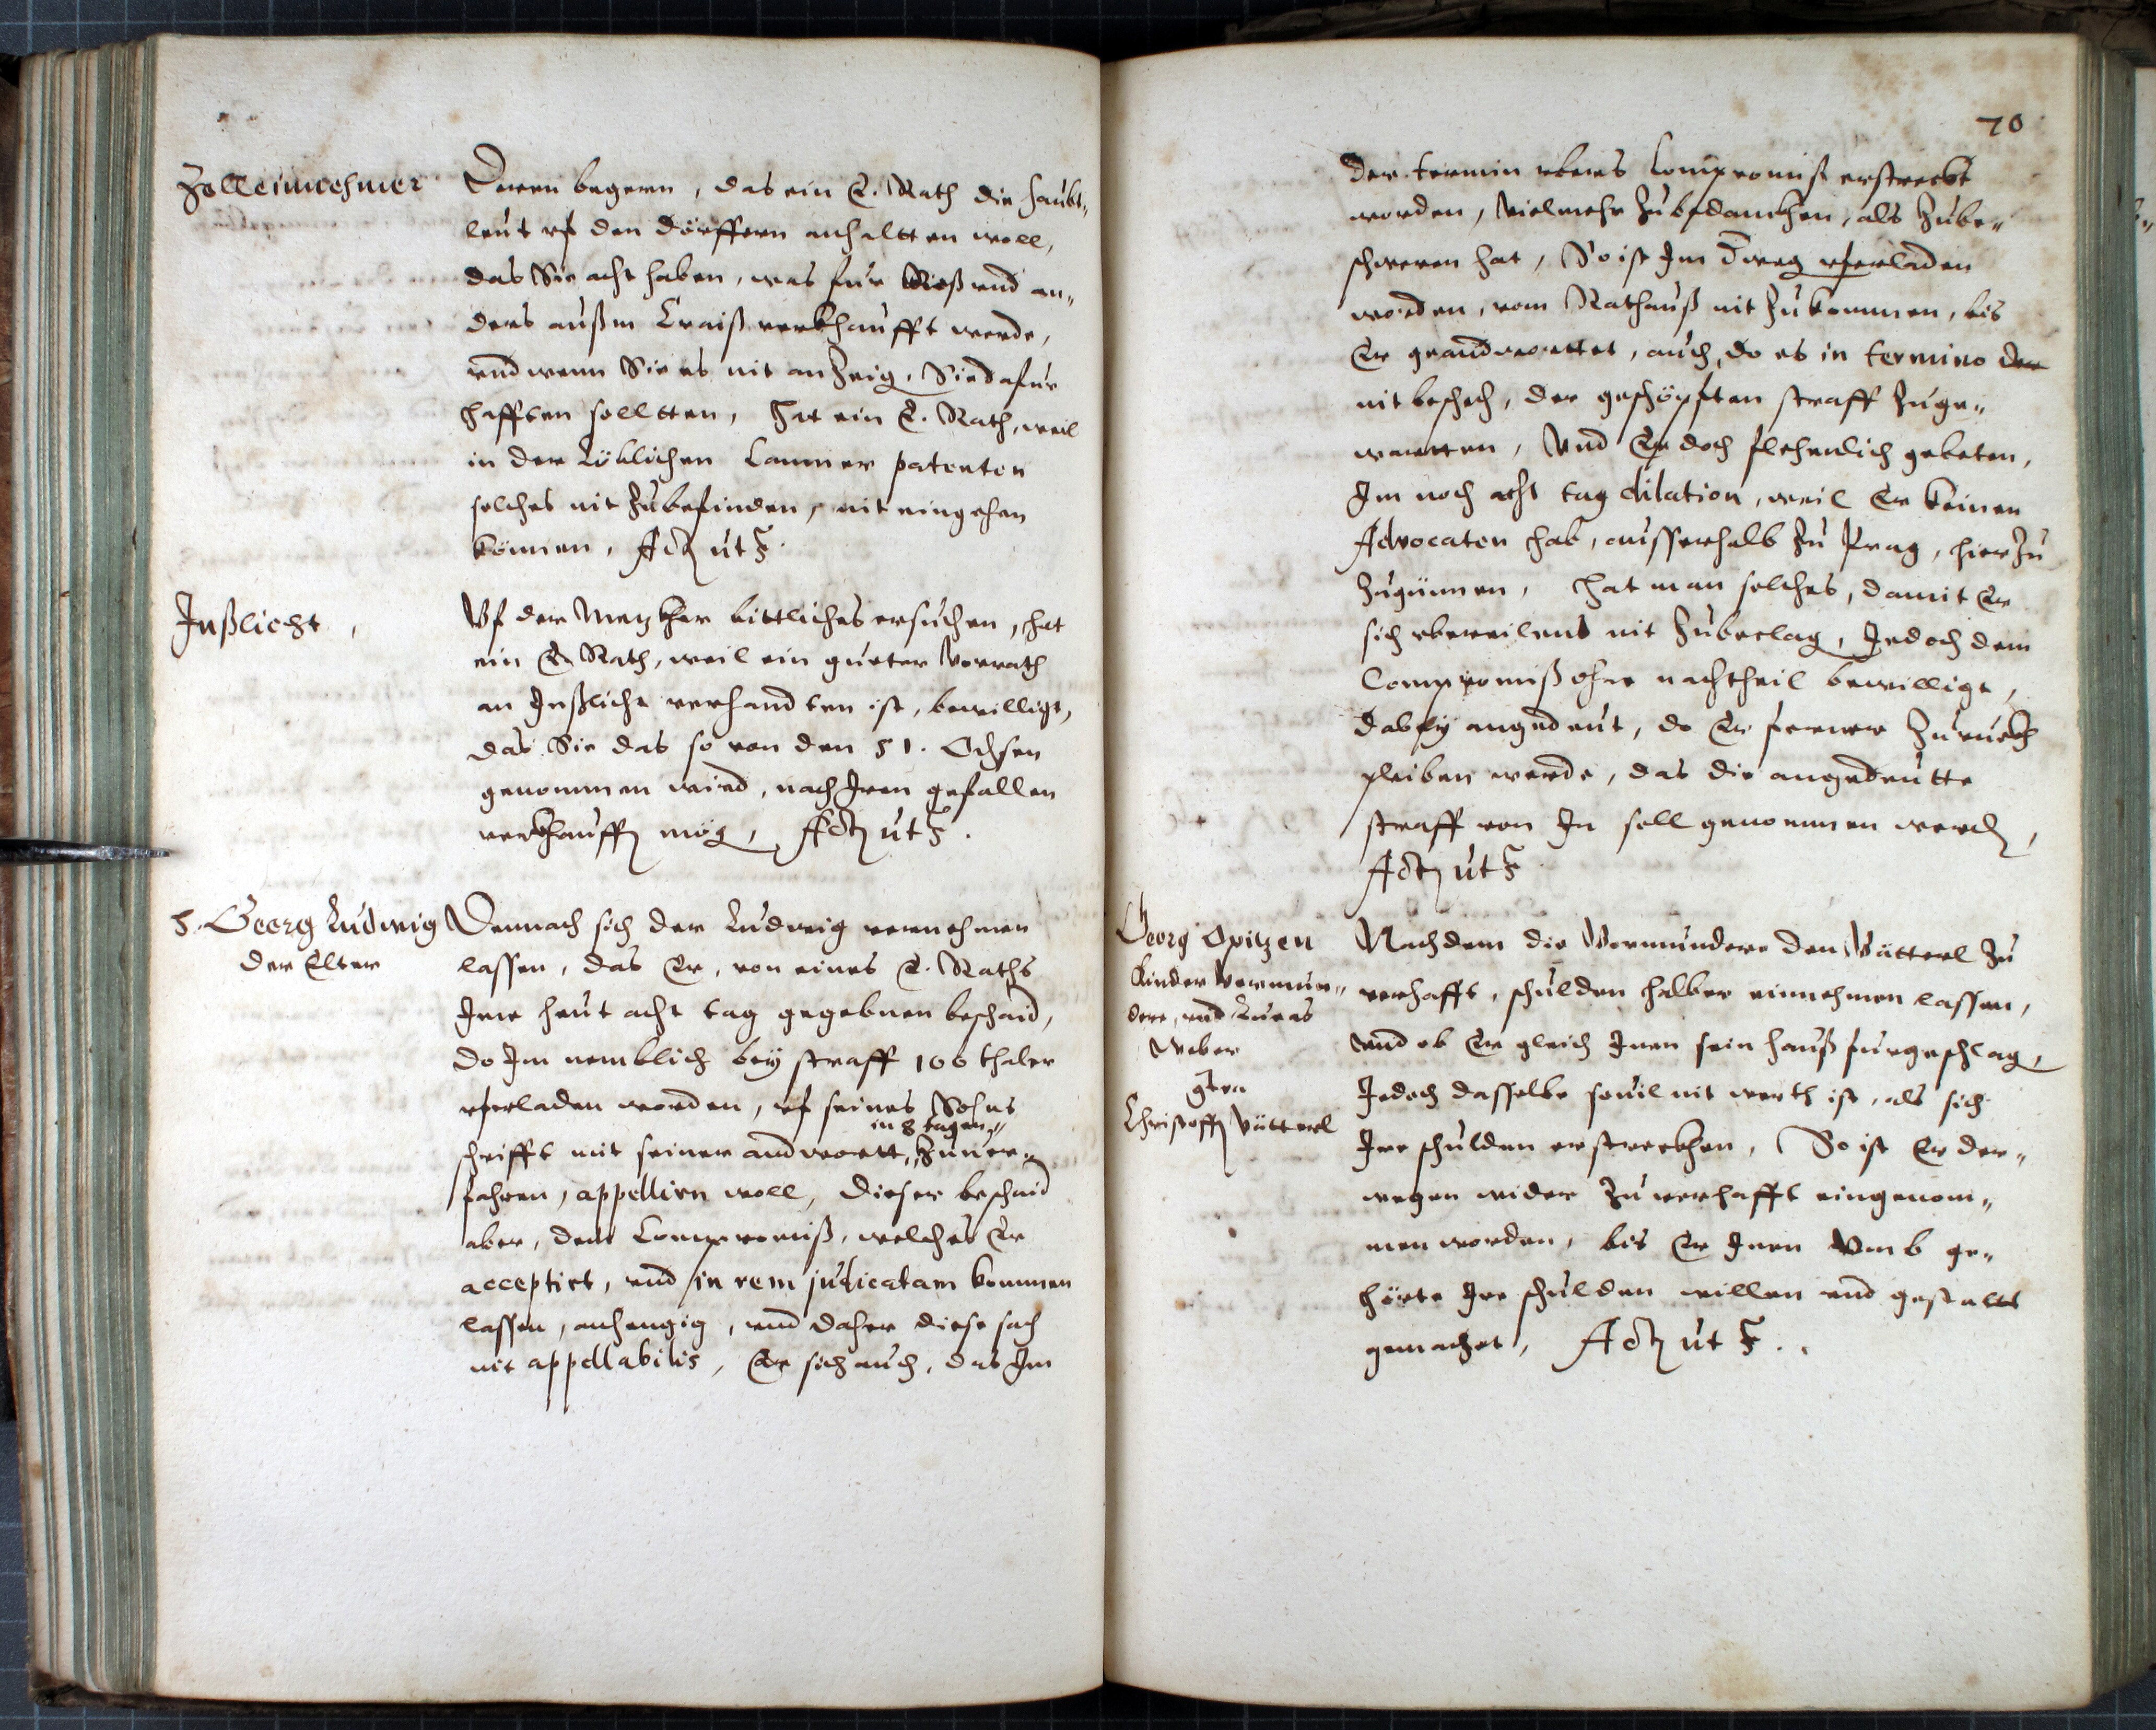 Zolleinnehmer
Deren begern, das ein E. Rath die haubt„
leut vf den dörffern anhaltten woll,
das Sie acht haben, was fur Viech vnd an„
ders außm Craiß verkhaufft werde,
vnd wenn Sie es nit anzeig, Sie dafur
hafften solltten, Hat ein E. Rath, weil
in der Löblichen Cammer patenten
solches nit zubefinden, nit eingehen
können, Act ut s.
Inßlicht,
Vf der Metzkher bittliches ersuchen, hat
ein E. Rath, weil ein gueter Vorrath
an Inßlicht verhandten ist, bewilligt,
das Sie das so von den 51. Ochsen
genommen wird, nach Irem gefallen
verkhauffn mög, Act ut s.
Georg Ludwig
der Elter
Demnach sich der Ludwig vernehmen
lassen, das Er, von eines E. Raths
Ime heut acht tag gegebnen beschaid,
do Im nemblich bey straff 100 thaler
vferladen worden, vf seines Sohns
in 8 tagen„
schrifft mit seiner andwortt, zuuer„
fahren, appelliren woll, dieser beschaid
aber, dem Compromiß, welches Er
acceptirt, vnd in rem judicatam kommen
lassen, anhengig, vnd daher diese sach
nit appellabilis, Er sich auch, das Im
70
der termin vbers Compromiß erstreckt
worden, Vielmehr zubedanckhen, als zube„
schweren hat, So ist Im vferladen
worden, vom Rathauß nit zukommen, bis
Er geandworttet, auch, do es in termino der
nit beschech, der geschöpften straff zuge„
wartten, Vnd Er doch flehenlich gebeten,
Im noch acht tag dilation, weil Er keinen
Advocaten hab, ausserhalb zu Prag, hierzu
zugünnen, Hat man solches, damit Er
sich vbereilens nit zubeclag, Jedoch dem
Compromiß ohne nachtheil bewilligt,
dabey angedeut, do Er ferner zuruckh
pleiben werde, das die angedeutte
straff von Im soll genommen werdn,
Act ut s.
Georg Opitzen
Kinder Vormun„
dere, vnd Lucas
Weber
gten
Christoff Vätterl
Nachdem die Vormundere den Vätterl zu
verhafft, schulden halber einnehmen lassen,
vnd ob Er gleich Inen sein hauß furgeschlag,
Jedoch dasselbe souil nit werth ist, als sich
Ire schulden erstreckhen, So ist Er der„
wegen wider zu verhafft eingenom„
men worden, bis Er Inen Vmb ge„
hörte Ire schulden willen vnd gestalt
gemachet, Act ut s.